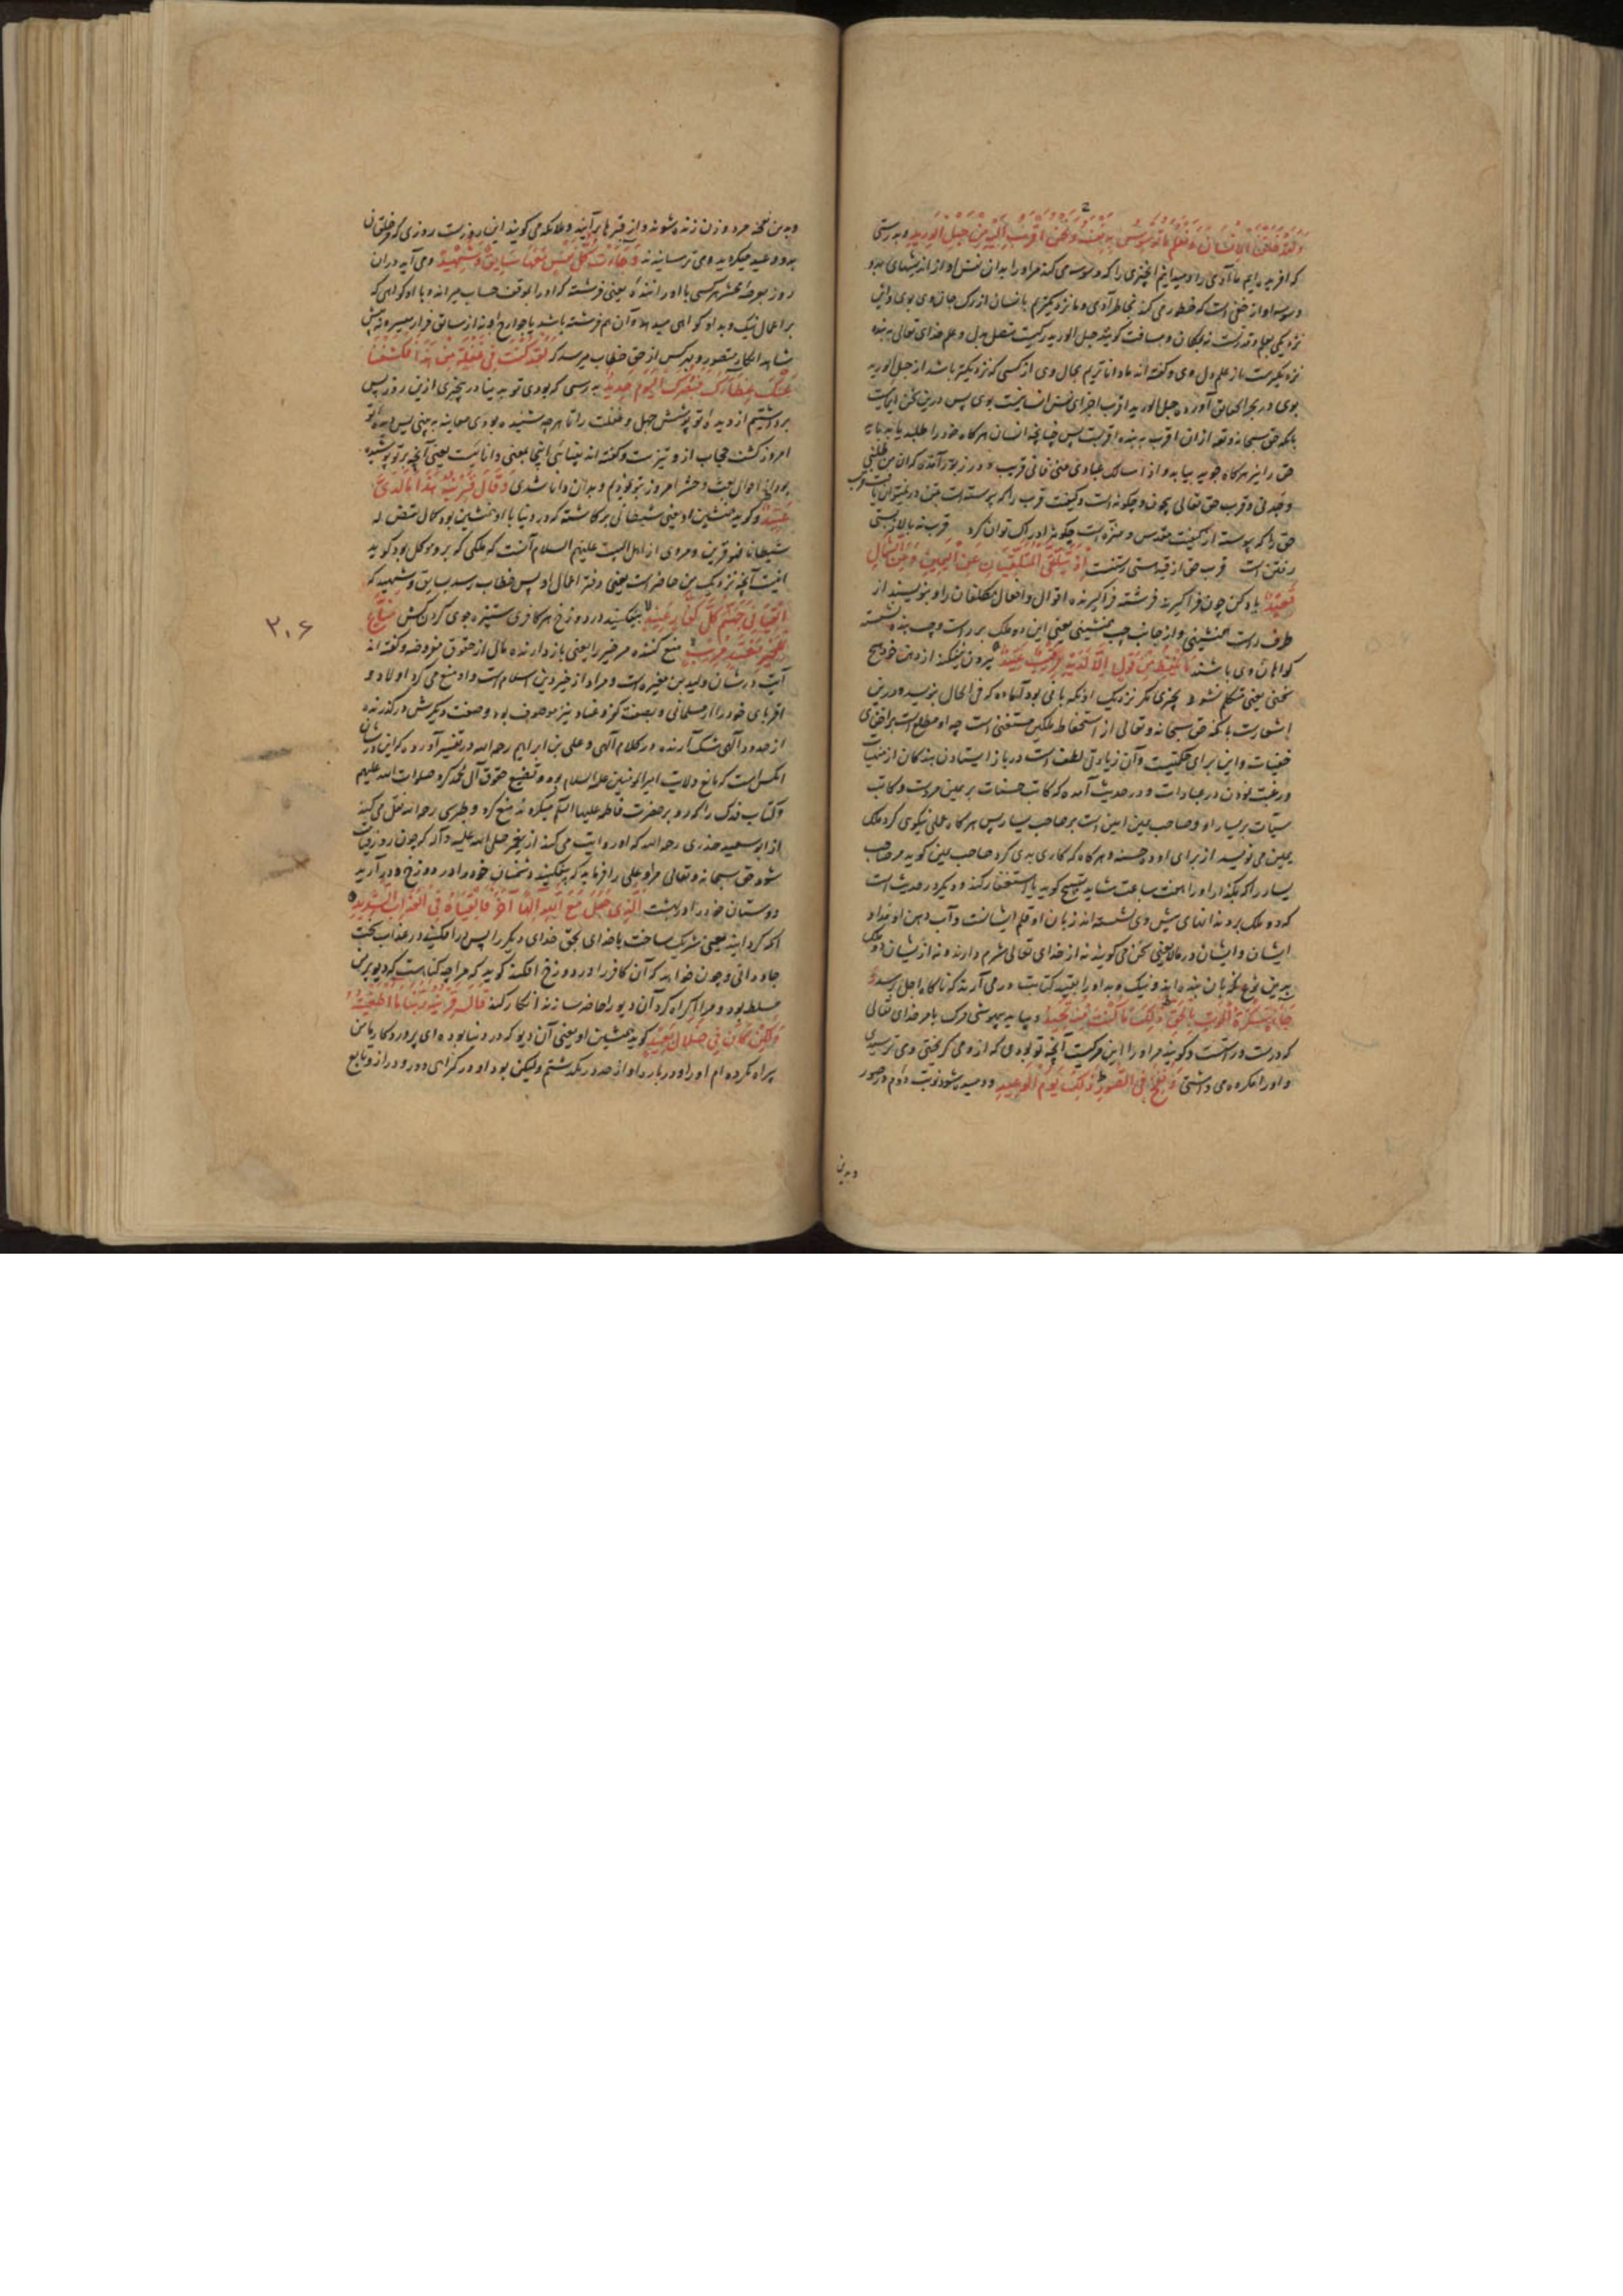 وَلَقَدْ خَلَقْنَا الْاِنْسَانَ وَنَعْلَمُ مَا تُوَسْوِسُ بِهِ نَفْسُهُ وَنَحْنُ اَقْرَبُ اِلَيْهِ مِنْ حَبْلِ الْوَرِيدِ و به رستی
که آفریده ایم ما آدمی را و میدانیم آنچیزی را که وسوسه می کند مر او را بدان نفس او از اندیشهای بد و
وسوسه آواز خفی است که خطور می کند بخاطر آدمی و ما نزدیکتریم بانسان از رک جان وی بوی و این
نزدیکی بعلم و قدرت نه بمکان و مسافت کویند حبل الورید رکیست متصل بدل و علم خدای تعالی به بنده
نزدیکترست از علم دل وی و کفته اند ما داناتریم بحال وی از کسی که نزدیکتر باشد از حبل الورید
بوی در بحر الحقایق آورده حبل الورید اقرب اجزای نفس انسانیست بوی پس درین سخن ایماست
بانکه حق سبحانه و تعالی از ان اقرب به بنده اقربست پس چنانچه انسان هرکاه خود را طلبد یابد بباید
حق را نیز هرکاه جوید بیابد و اذا سالک عبادی عنی فانی قریب و در زبور آمده که ان من طلبنی
وجدنی و قرب حق تعالی بیچون و چکونه است و کیفیت قرب را که پیوسته است بتن در نمیتوان یافت قرب
حق را که پیوسته از کیفیت مقدس و منزه است چکونه ادراک توان کرد قرب نه بالا و پستی
رفتن است قرب حق از قید هستی رستنست اِذْ يَتَلَقَّى الْمُتَلَقِّيَانِ عَنِ الْيَمِينِ وَعَنِ الشِّمَالِ
قَعِيدٌ یاد کن چون فرا کیرند دو فرشته فرا کیرنده اقوال و افعال مکلفان را و بنویسند از
طرف راست همنشینی و از جانب چپ همنشینی یعنی این دو ملک بر راست و چپ بنده نشسته
کواهان وی باشند مَا يَلْفِظُ مِنْ قَوْلٍ اِلَّا لَدَيْهِ رَقِيبٌ عَتِيدٌ بیرون نیفکند از دهن خود هیچ
سخنی یعنی متکلم نشود بچیزی مکر نزدیک او نکهبانی بود آماده که فی الحال بنویسد و درین
اشعارست بانکه حق سبحانه و تعالی از استحفاظ ملکین مستغنی است چه او مطلع است بر اخفای
خفیات و این برای حکمتیست و آن زیادتی لطف است در باز ایستادن بندکان از منهیات
و رغبت نمودن در عبادات و در حدیث آمده که کاتب حسنات بر یمین مردست و کاتب
سیئات بر یسار او و صاحب یمین امین است بر صاحب یسار پس هرکاه عملی نیکوی کرد ملک
یمین می نویسد از برای او ده حسنه و هرکاه که کاری بدی کرد صاحب یمین کوید مر صاحب
یسار را که بکذار او را هفت ساعت شاید تسبیح کوید یا استغفار کند و دیکر در حدیث است
که دو ملک بر دندانهای پیش وی نشسته اند زبان او قلم ایشانست و آب دهن او مداد
ایشان و ایشان در ملا یعنی سخن می کویند نه از خدای تعالی شرم دارند و نه از ایشان
بدین نوع نکهبان بنده اند و نیک و بد او را بقید کتابت در می آرند که ناکاه اجل رسد وَ
جَاءَتْ سَكْرَةُ الْمَوْتِ بِالْحَقِّ ذٰلِكَ مَا كُنْتَ مِنْهُ تَحِيدُ و بیاید بیهوشی مرک بامر خدای تعالی
که درست و راستست و کویند مر او را این مرکیست آنچه تو بودی که از و می کریختی و می ترسیدی
و او را مکروه می داشتی وَنُفِخَ فِي الصُّورِ ذٰلِكَ يَوْمُ الْوَعِيدِ و دمیده شود نوبت دوم در صور
و بدین
و بدین نفخه مرد و زن زنده شوند و از قبرها برآیند و ملائکه می کویند این روزست روزی که خلقان
بدو وعید میکردید و می ترسانیدند وَجَاءَتْ كُلُّ نَفْسٍ مَعَهَا سَائِقٌ وَشَهِيدٌ و می آید دران
روز بعرصه محشر هر کسی با او رانندهٔ یعنی فرشته که او را بموقف حساب میراند و با او کواهی که
بر اعمال نیک و بد او کواهی میدهد و آن هم فرشته باشد یا جوارح او نه از سابق فرار میسر و نه پیش
شاهد انکار متصور و بهر کس از حق خطاب میرسد که لَقَدْ كُنْتَ فِي غَفْلَةٍ مِنْ هٰذَا فَكَشَفْنَا
عَنْكَ غِطَاءَكَ فَبَصَرُكَ الْيَوْمَ حَدِيدٌ به رستی که بودی تو به دنیا در بیخبری ازین روز پس
برداشتیم از دیدهٔ تو پوشش جهل و غفلت را تا هرچه شنیده بودی معاینه به بینی پس دیدهٔ تو
امروز کشف حجاب از و تیزست و کفته اند بینائی اینجا بمعنی دانائیست یعنی آنچه بر تو پوشیده
بود از احوال بعث و حشر امروز بتو نمودیم و بدان دانا شدی وَقَالَ قَرِينُهُ هٰذَا مَا لَدَيَّ
عَتِيدٌ و کوید همنشین او یعنی شیطانی برکاشته که در دنیا با او همنشین بود کمال نقیض له
شیطانا فهو قرین و مروی از اهل البیت علیهم السلام آنست که ملکی که بر و موکل بود کوید
اینست آنچه نزدیک من حاضر است یعنی دفتر اعمال او پس خطاب رسد بسایق و شهید که
اَلْقِيَا فِي جَهَنَّمَ كُلَّ كَفَّارٍ عَنِيدٍ بیفکنید در دوزخ هر کافری ستیزه جوی کردن کش مَنَّاعٍ
لِلْخَيْرِ مُعْتَدٍ مُرِيبٍ منع کننده مر خیر را یعنی باز دارنده مال از حقوق مفروضه و کفته اند
آیت در شان ولید بن مغیره است و مراد از خیر دین اسلام است و او منع می کرد اولاد و
اقربای خود را از مسلمانی و بصفت کفر و عناد نیز موصوف بود و صفت دیکرش درکذرنده
از حدود آلهی شک آرنده در کلام آلهی و علی بن ابراهیم رحمه الله در تفسیر آورده که این در شان
انکس است که مانع ولایت امیر المؤمنین علیه السلام بود و تضییع حقوق آل محمد کرد صلوات الله علیهم
و کتاب فدک را که رد بر حضرت فاطمه علیها السلام میکردند منع کرد و طبرسی رحمه الله نقل می کند
از ابو سعید خدری رحمه الله که او روایت می کند از پیغمبر صلی الله علیه و آله که چون روز قیامت
شود حق سبحانه و تعالی مرا و علی را فرماید که بیفکنید دشمنان خود را در دوزخ و درآرید
دوستان خود را در بهشت اَلَّذِي جَعَلَ مَعَ اللّٰهِ اِلٰهًا آخَرَ فَاَلْقِيَاهُ فِي الْعَذَابِ الشَّدِيدِ
انکه کردانید یعنی شریک ساخت با خدای بحق خدای دیکر را پس درافکنید در عذاب سخت
جاودانی و چون خواهد که آن کافر را در دوزخ افکنند کوید که مرا چه کناهست که دیو بر من
مسلط بود و مرا اکراه کرد آن دیو را حاضر سازند انکار کند قَالَ قَرِينُهُ رَبَّنَا مَا اَطْغَيْتُهُ
وَلٰكِنْ كَانَ فِي ضَلَالٍ بَعِيدٍ کوید همنشین او یعنی آن دیو که در دنیا بوده ای پروردکار ما من
بیراه نکرده ام او را و دربارهٔ او از حد درنکدشتم ولیکن بود او در کمراهی دور و دراز و تابع
۲۰۶